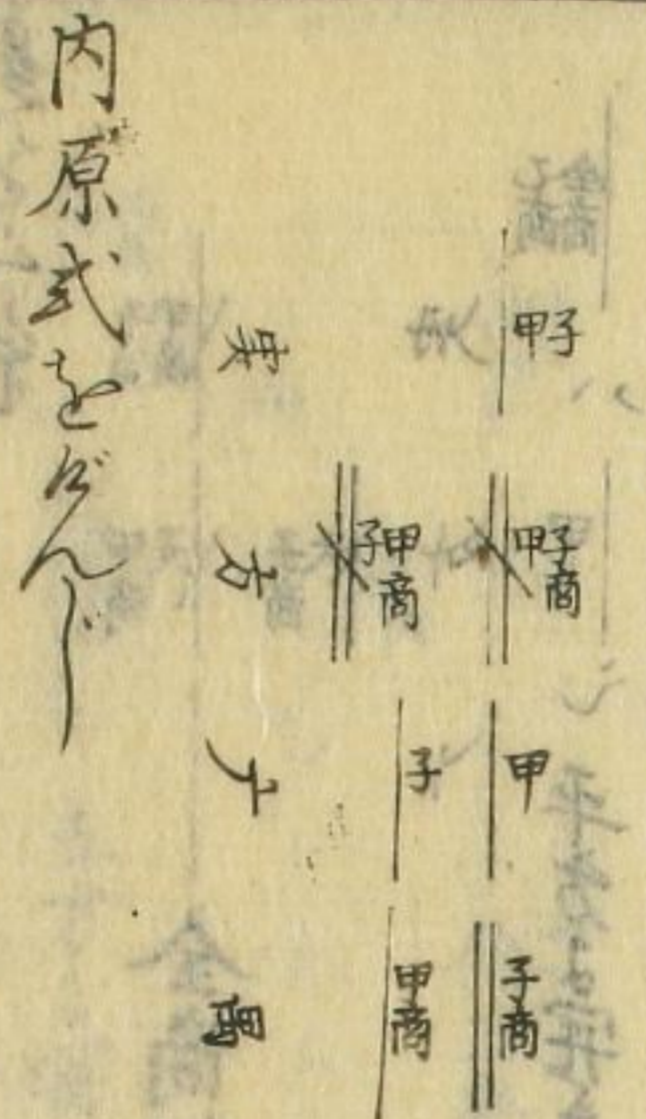 甲子
甲子商
甲
子商
子甲商
子
甲商
実
方
广
隅
内原式をげんじ